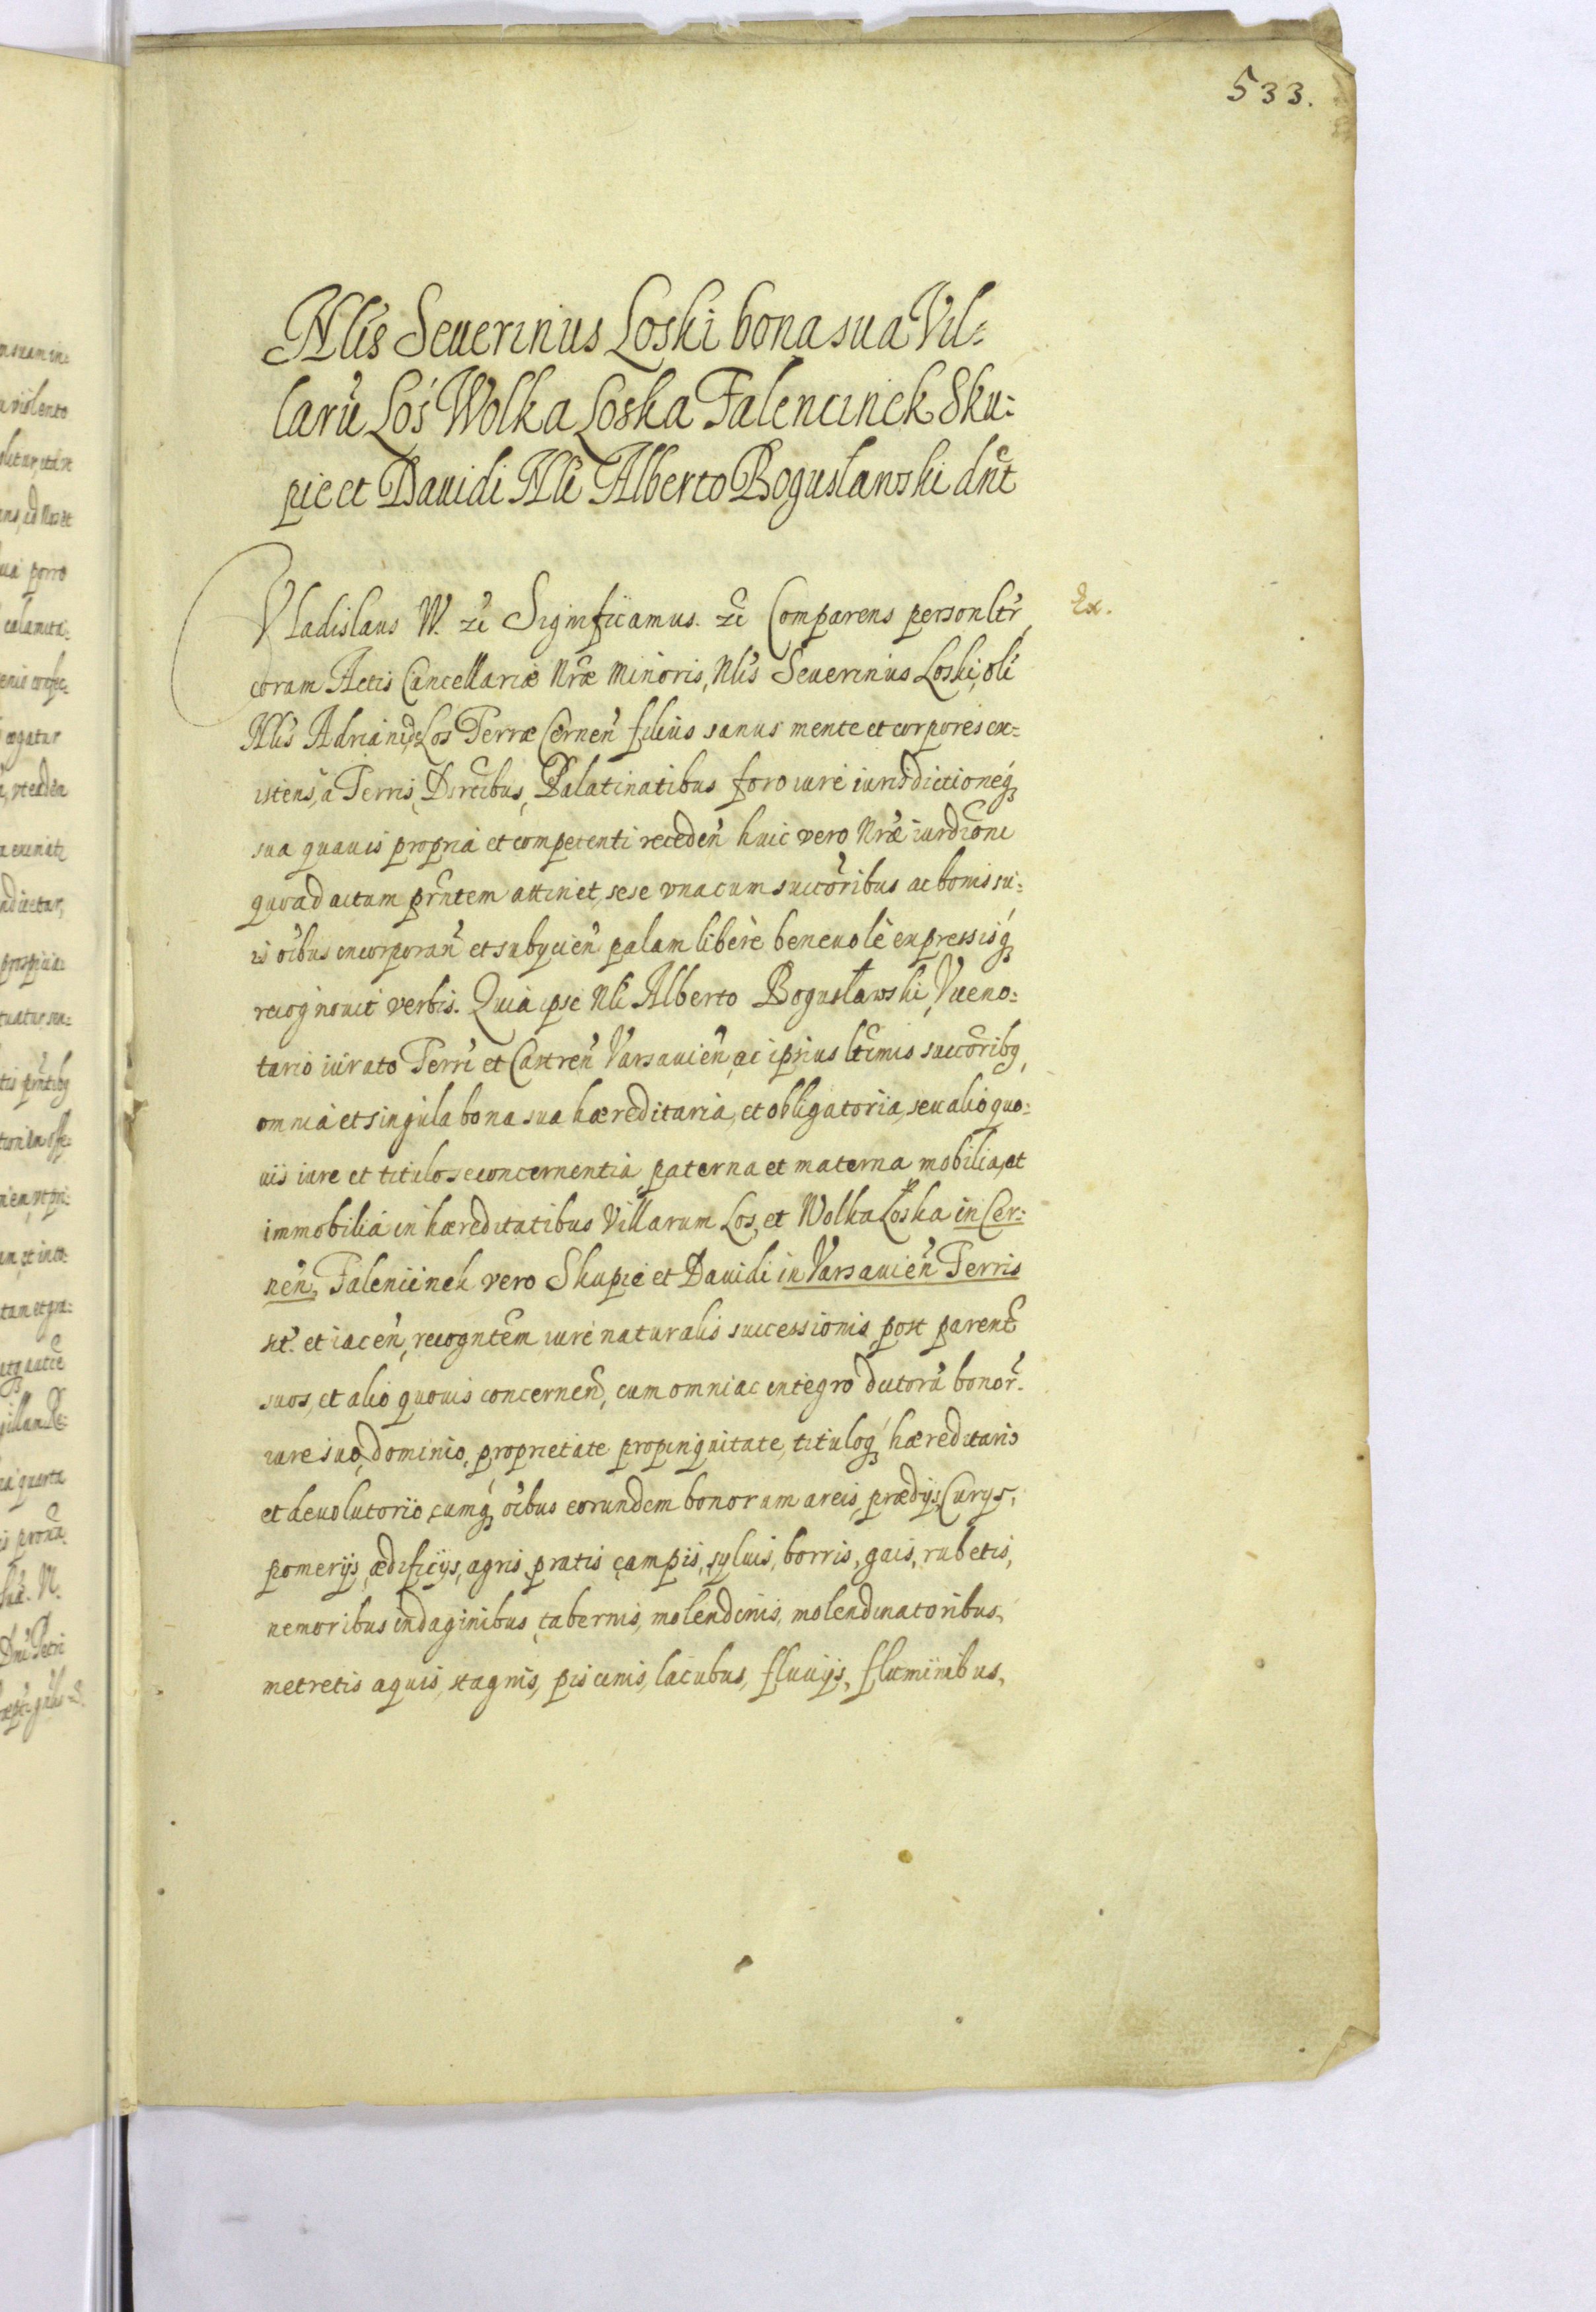 533.
Nlis Seuerinus Loski bona sua Vil=
larũ Łoś Wolka Loska Falencinek Sku=
pie et Dauidi Nli Alberto Boguslawski dnt
Vladislaus IV. zc Significamus. zc Comparens personltr
Ex.
coram Actis Cancellariæ Nræ Minoris, Nlis Seuerinus Loski, oli
Nlis Adriani de Los Terræ Cernen filius sanus mente et corpore sex=
istens, a Terris, Districtibus, Palatinatibus foro iure iurisdictioneq
sua quauis propria et competenti receden huic vero Nræ iurdicioni
quoad actum prntem attinet, sese vna cum succoribus ac bonis su=
is oibus incorporan et subycien palam libere beneuole expressisq
recognouit verbis. Quia ipse Nli Alberto Bogusławski, Viceno=
tario iurato Terri et Castren Varsauien, ac ipsius ltimis succoribq,
omnia et singula bona sua hæreditaria, et obligatoria, seu alio quo=
uis iure et titulo se concernentia paterna et materna mobilia, et
immobilia in hæreditatibus Villarum Los, et Wolka Loska in Cer=
nen, Faleniinek vero Skupie et Dauidi in Varsauien Terris
sit. et iacen, recogntem iure naturalis successionis post parent
suos, et alio quouis concernen, cum omni ac integro dictorũ bonor.
iure suo, dominio, proprietate propinquitate, tituloq hæreditario
et deuolutorio cumq oibus eorundem bonorum areis, prædijs, Curys,
pomerijs, ædificijs, agris pratis campis, syluis, borris, gais, rubetis,
nemoribus indaginibus tabernis, molendinis, molendinatoribus,
metretis aquis, stagnis, piscinis, lacubus, fluuijs, fluminibus,